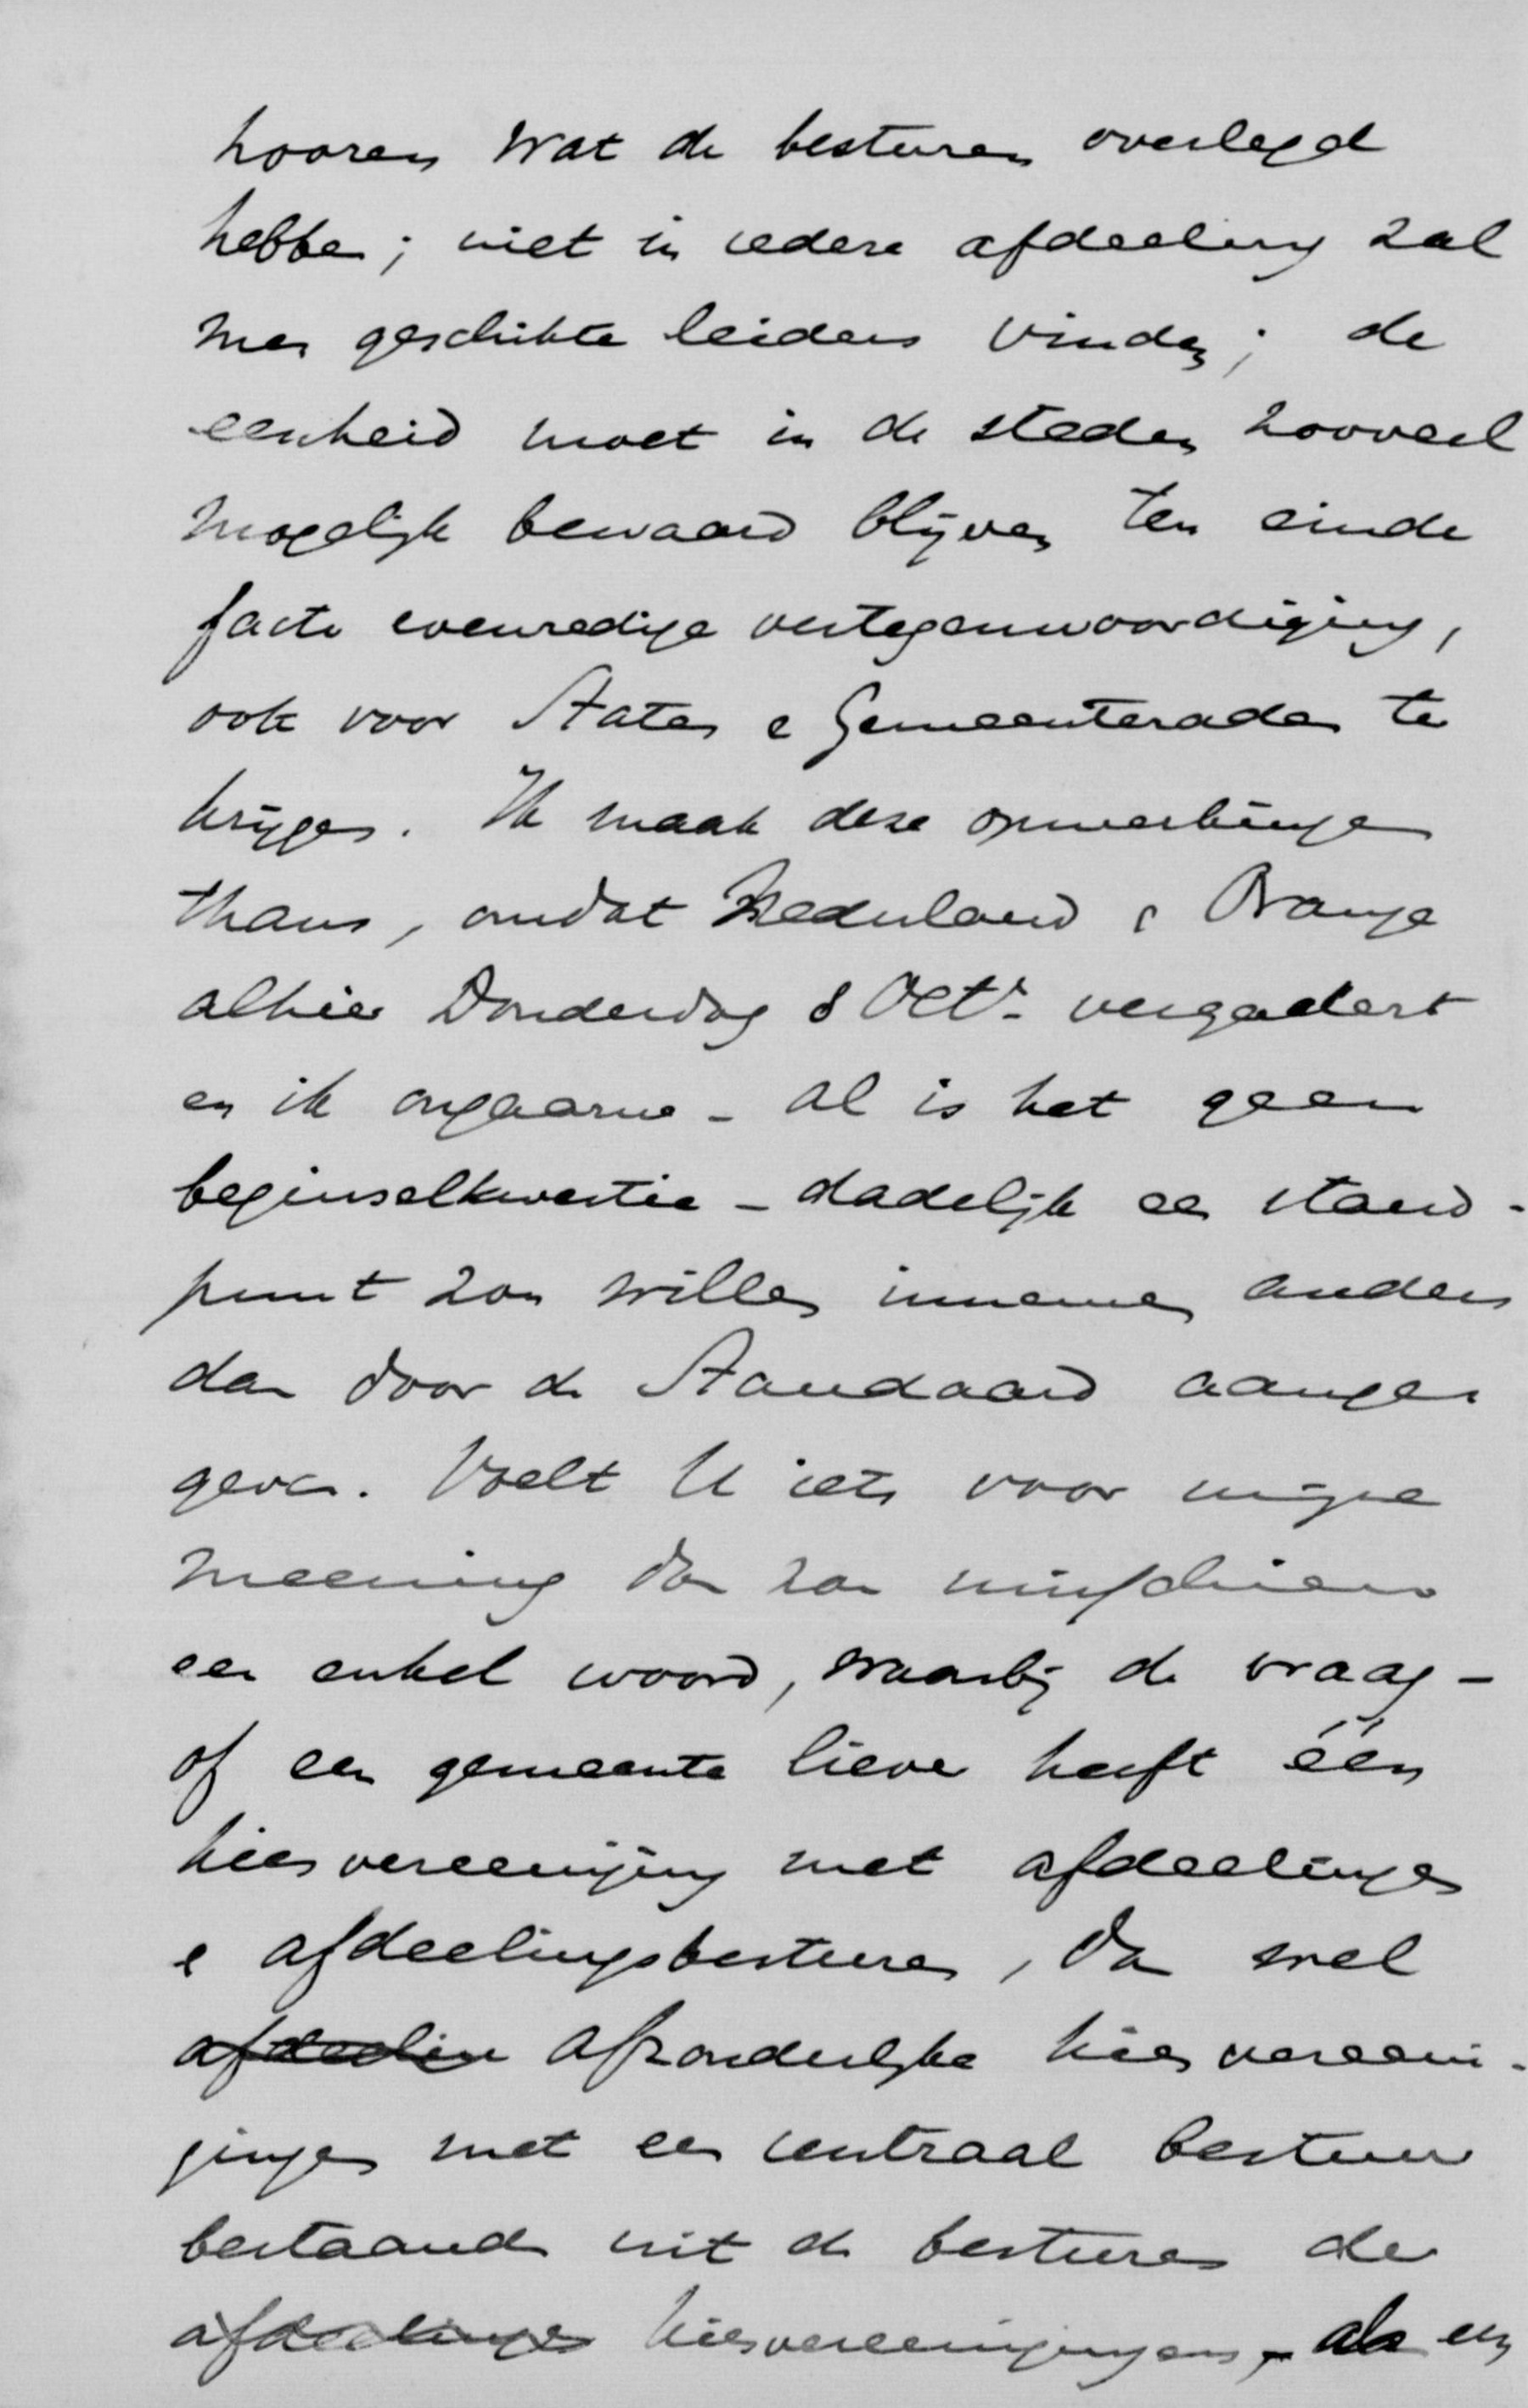 hooren wat de besturen overlegd
hebben; niet in iedere afdeeling zal
men geschikte leiders vinden; de
eenheid moet in de steden zooveel
mogelijk bewaard blijven ten einde
facto evenredige vertegenwoordiging,
ook voor Staten e Gemeenteraden te
krijgen. Ik maak deze opmerkingen
thans, omdat Nederland e Oranje
alhier Donderdag 8 Octr. vergadert
en ik ongaarne - al is het geen
beginselkwestie - dadelijk een stand-
punt zou willen innemen anders
dan door de Standaard aange-
geven. Voelt U iets voor mijne
meening dan zou misschien
een enkel woord, waarbij de vraag -
of een gemeente liever heeft één
kiesvereeniging met afdeelingen
e afdeelingsbesturen, dan wel
afdeelin afzonderlijke kiesvereeni-
gingen met een centraal bestuur
bestaande uit de besturen der
afdeelingen kiesvereenigingen, - als een